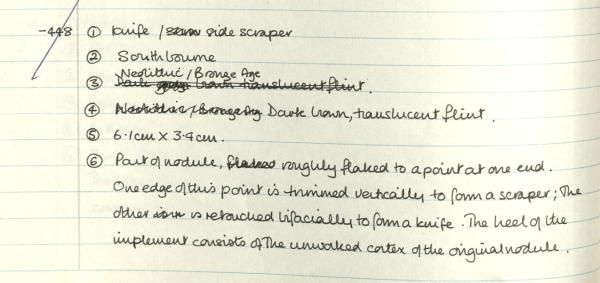 -448 ① Knife / side scraper
② Southbourne
Neolithic / Bronze Age
③ Dark brown translucent flint.
④ Neolithic / Bronze Age Dark brown, translucent flint.
⑤ 6.1cm X 3.9cm.
⑥ Part of nodule, flaked roughly flaked to a point at one end.
One edge of this point is trimmed vertically to form a scraper; The
other is retouched bifacially to form a knife. The heel of the
implement consists of The unworked cortex of the original nodule.